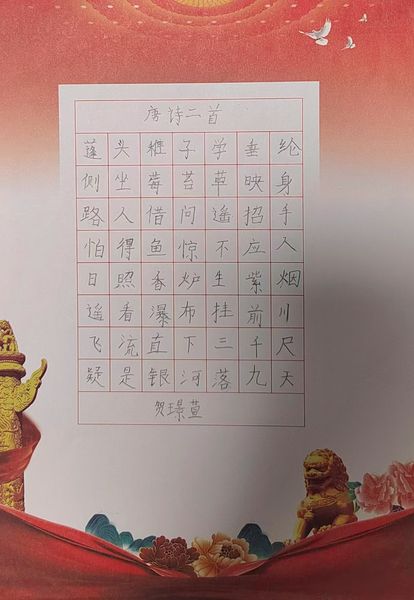 唐诗二首
蓬头稚子学垂纶
侧坐莓苔草映身
路人借问遥招手
怕得鱼惊不应人
日照香炉生紫烟
遥看瀑布挂前川
飞流直下三千尺
疑是银河落九天
贺璟萱